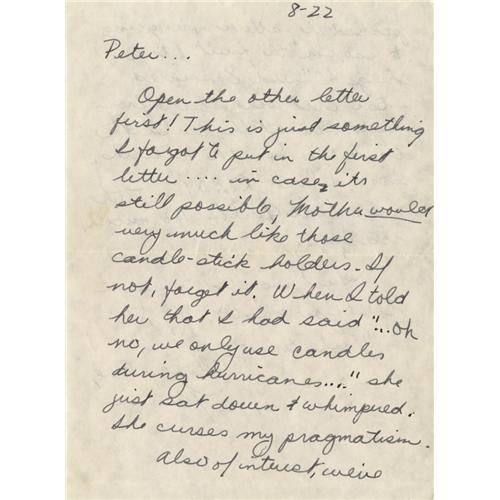 8-22
Peter...
Open the other letter
first! This is just something
I forgot to put in the first
letter .... in case, its
still possible, Mother would
very much like those
candle-stick holders. If
not, forget it. When I told
her that I had said "...oh
no, we only use candles
during hurricanes...." she
just sat down & whimpered.
She curses my pragmatism.
Also of interest, we've